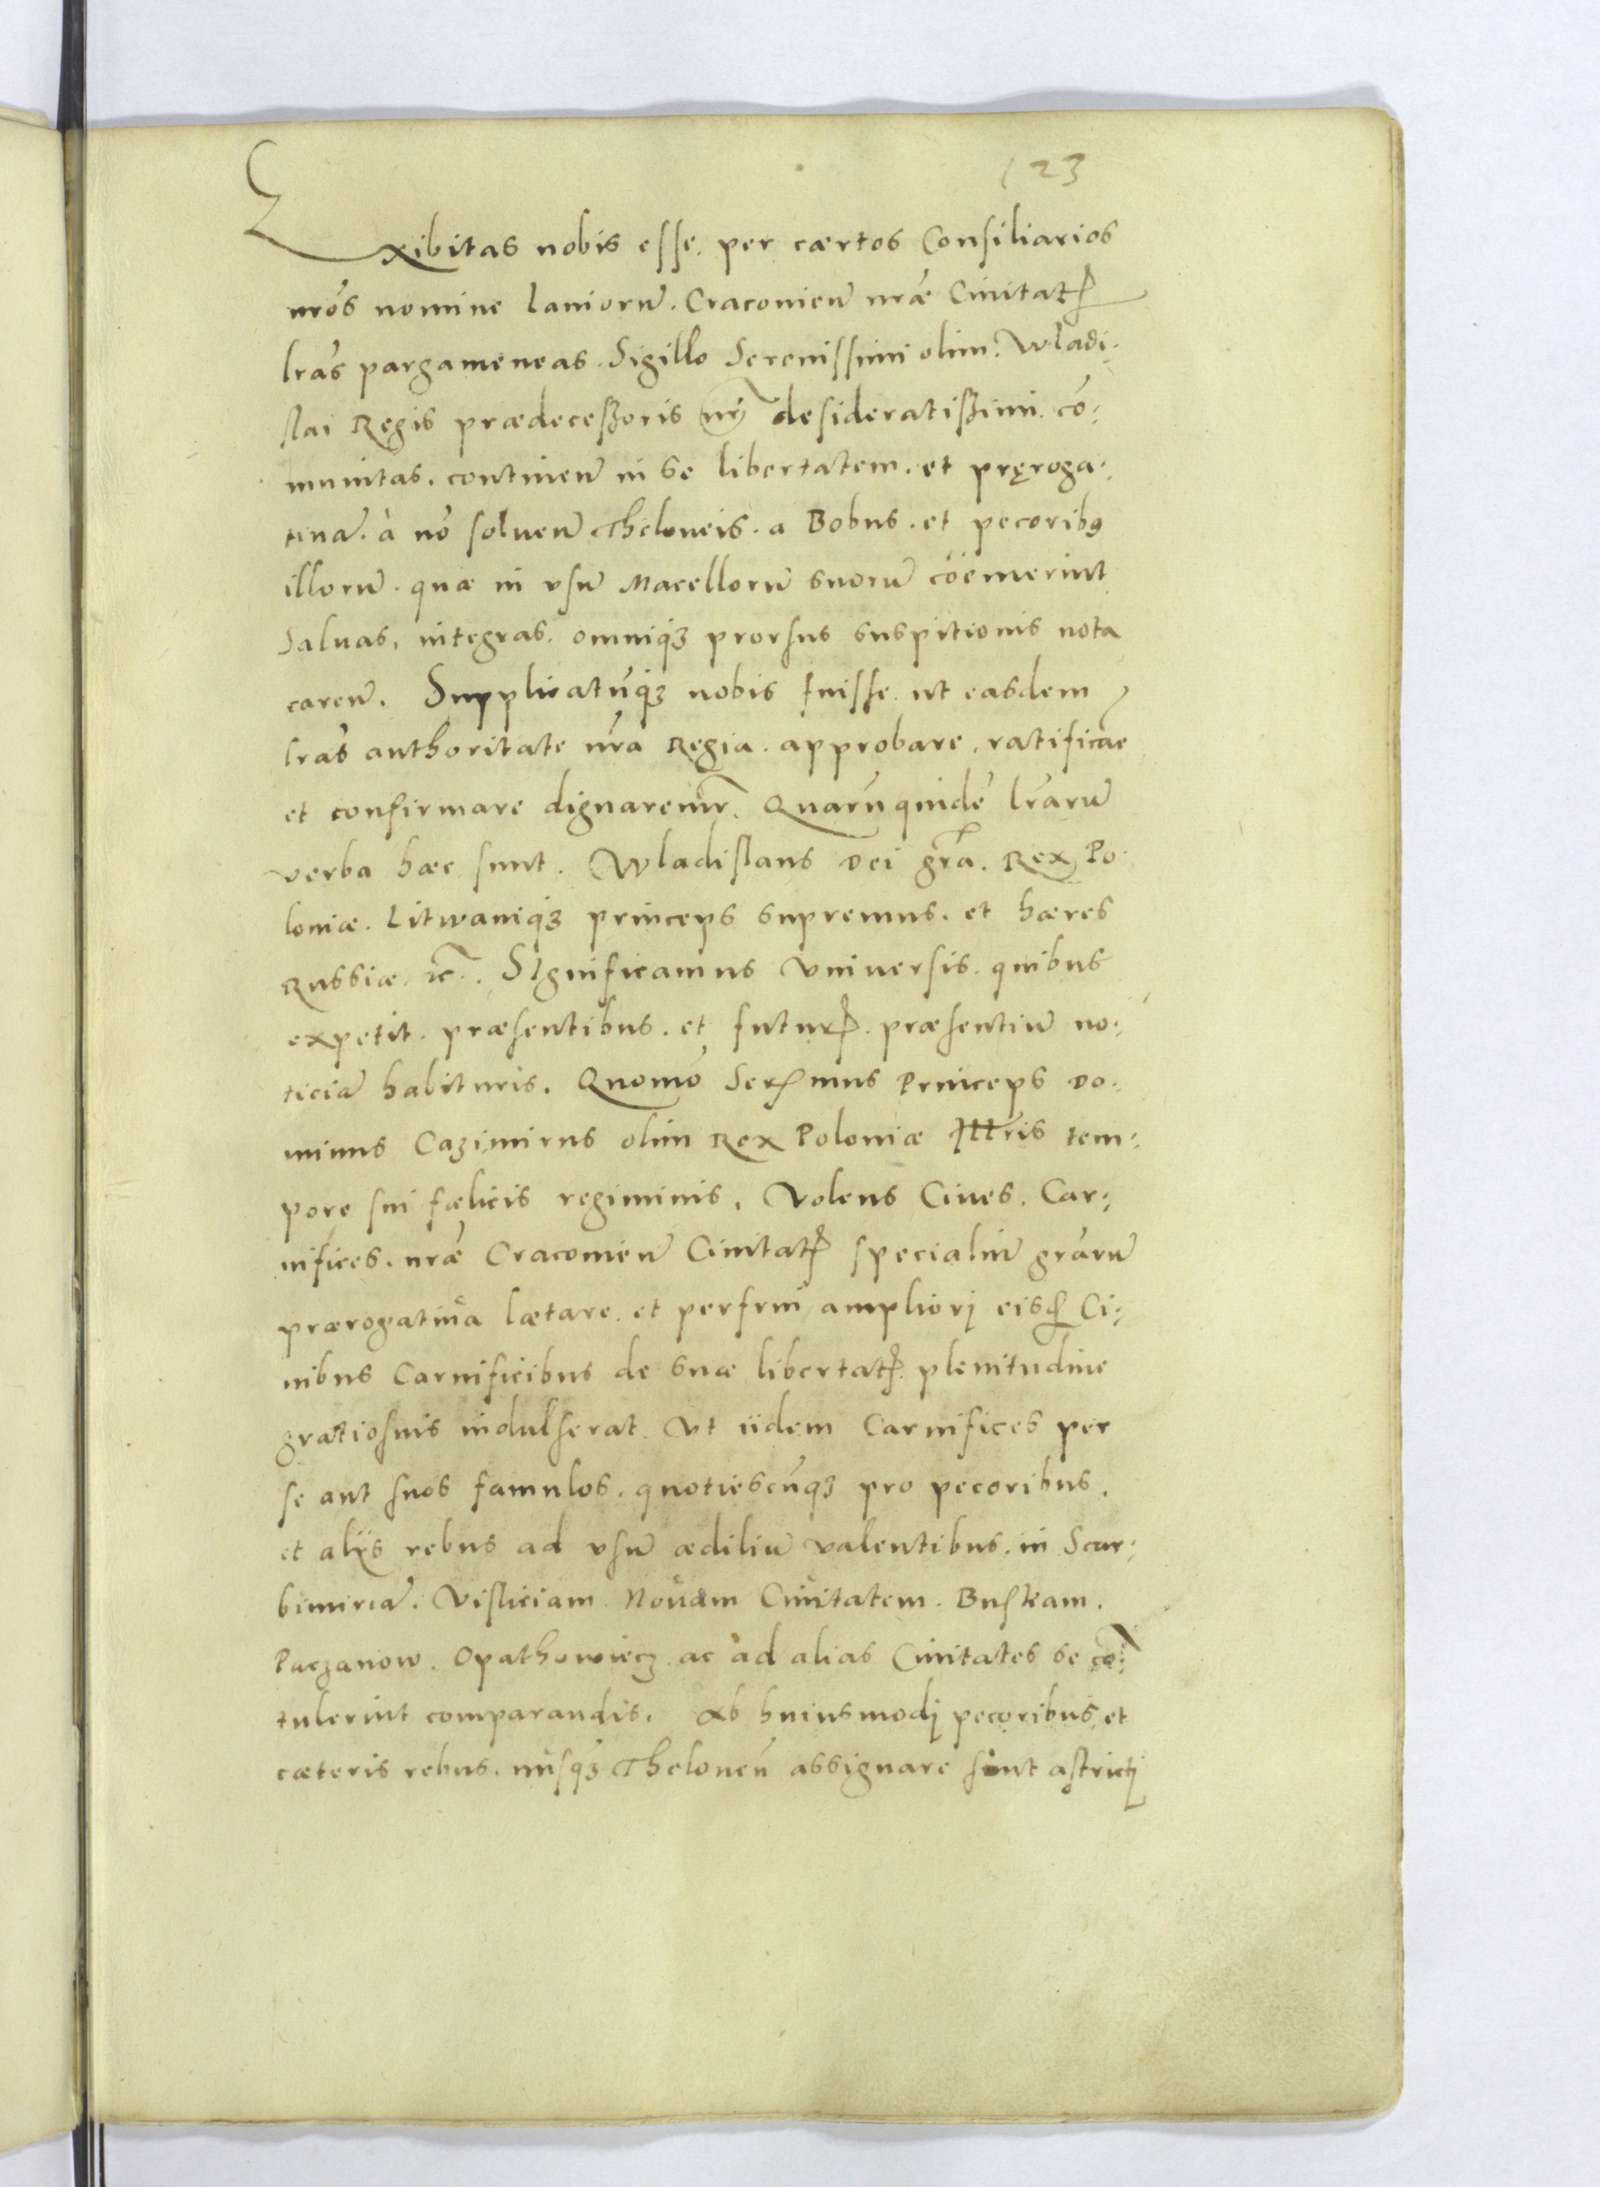 123
Exibitas nobis esse. per cærtos Consiliarios
nrōs nomine laniorū. Cracovieñ nrǣ Civitatꝭ
lrās pargameneas. Sigillo Serenissimi olim. Wladi:
slai Regis prædeceßoris nrĩ desideratißimi. cō:
munitas. continen̄ in se libertatem. et pręroga:
tivā. à nō solven̄ Theloneis. a Bobus. et pecoribꝰ
illorū. quæ in vsū Macellorū suorū cöemerint
Salvas, integras. omniqꝫ prorsus suspitionis nota
caren̄. Supplicatūqꝫ nobis fuisse. ut easdem
lrās authoritate nr̄a Regia. approbare. ratificāe
et confirmare dignaremr̄. Quarūquidē lrārū
verba hæc sunt. Wladislaus Dei gr̄a. Rex Po:
loniæ. Litwaniqꝫ princeps supremus. et hæres
Russiæ. ꝛc̄. SIgnificamus Vniversis. quibus
expetit. præsentibus. et futurꝭ. præsentiū no:
ticiā habituris. Quomō Serꝭmus Princeps Do:
minus Cazimirus olim Rex Poloniæ Illr̄is tem:
pore sui fælicis regiminis, Volens Cives. Car:
nifices. nrǣ Cracovien̄ Civitatꝭ specialiū grārū
prærogativa lætare. et perfrui ampliori eisꝫ Ci:
vibus Carnificibus de suæ libertatꝭ. plenitudine
gratiosius indulserat. Vt iidem Carnifices per
se aut suos famulos. quotiescūqꝫ pro pecoribus.
et alijs rebus ad vsū ædiliū valentibus. in Scar:
bimiriā. Visliciam Novam Civitatem. Buskam.
Paczanow. Opathowiecz. ac ad alias Civitates se cō:
tulerint comparandis. Ab huiusmodi pecoribus, et
cæteris rebus. nūsqꝫ Theloneū assignare sint astricti